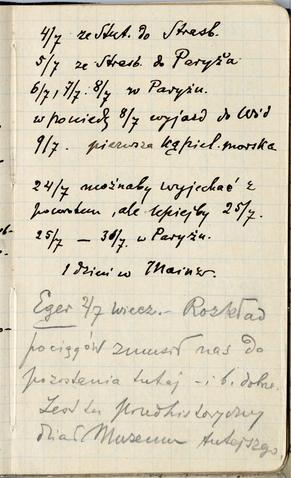 4/7 ze Stut. do Strasb.
5/7 ze Strasb. do Paryża
6/7, 7/7. 8/7 w Paryżu.
w poniedz 8/7 wyjazd do Wiú
9/7. pierwsza kąpiel. morska
24/7 możnaby wyjechać z
powrotem, ale lepiejby 25/7.
25/7 — 30/7. w Paryżu.
1 dzień w Mainz.
Eger 2/7 wiecz. – Rozkład
pociągów zmusił nas do
pozostania tutaj – i b. dobrze.
Jest tu prudhistoryczny
dział Muzeum tutejszego.